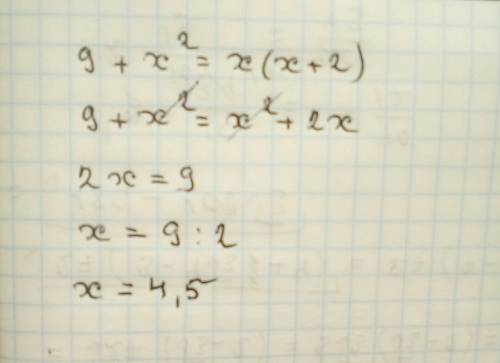 9 + x² = x(x+2)
9 + x² = x² + 2x
2x = 9
x = 9 : 2
x = 4,5